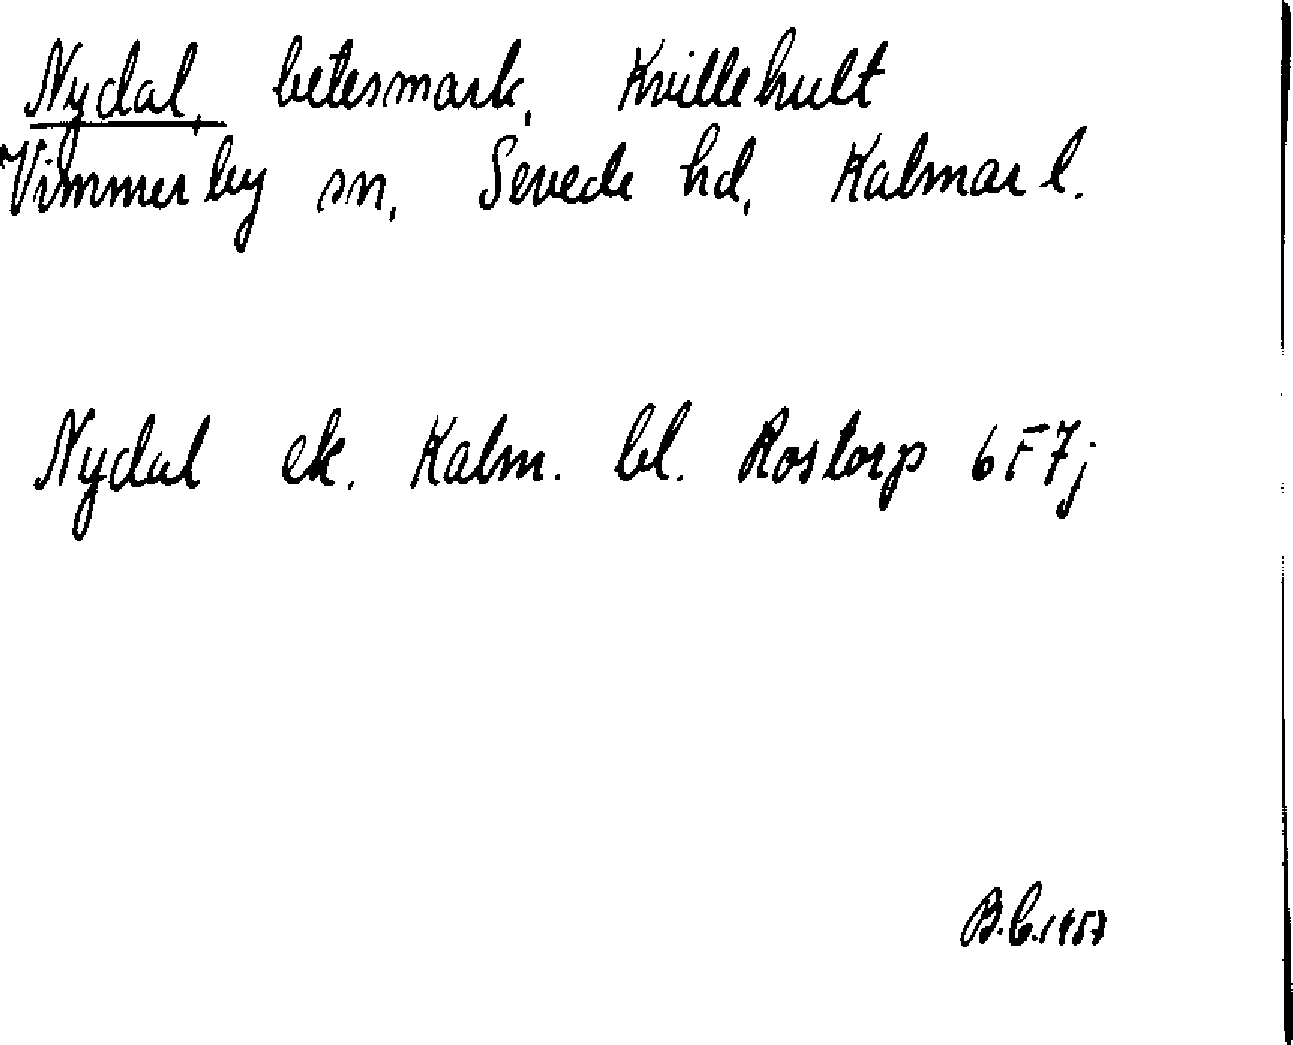 Nydal, betesmark, Kvillehult
Vimmerby sn, Sevede hd, Kalmar l.
Nydal ek. Kalm. bl. Rostorp 6F7j
B.C. 1957